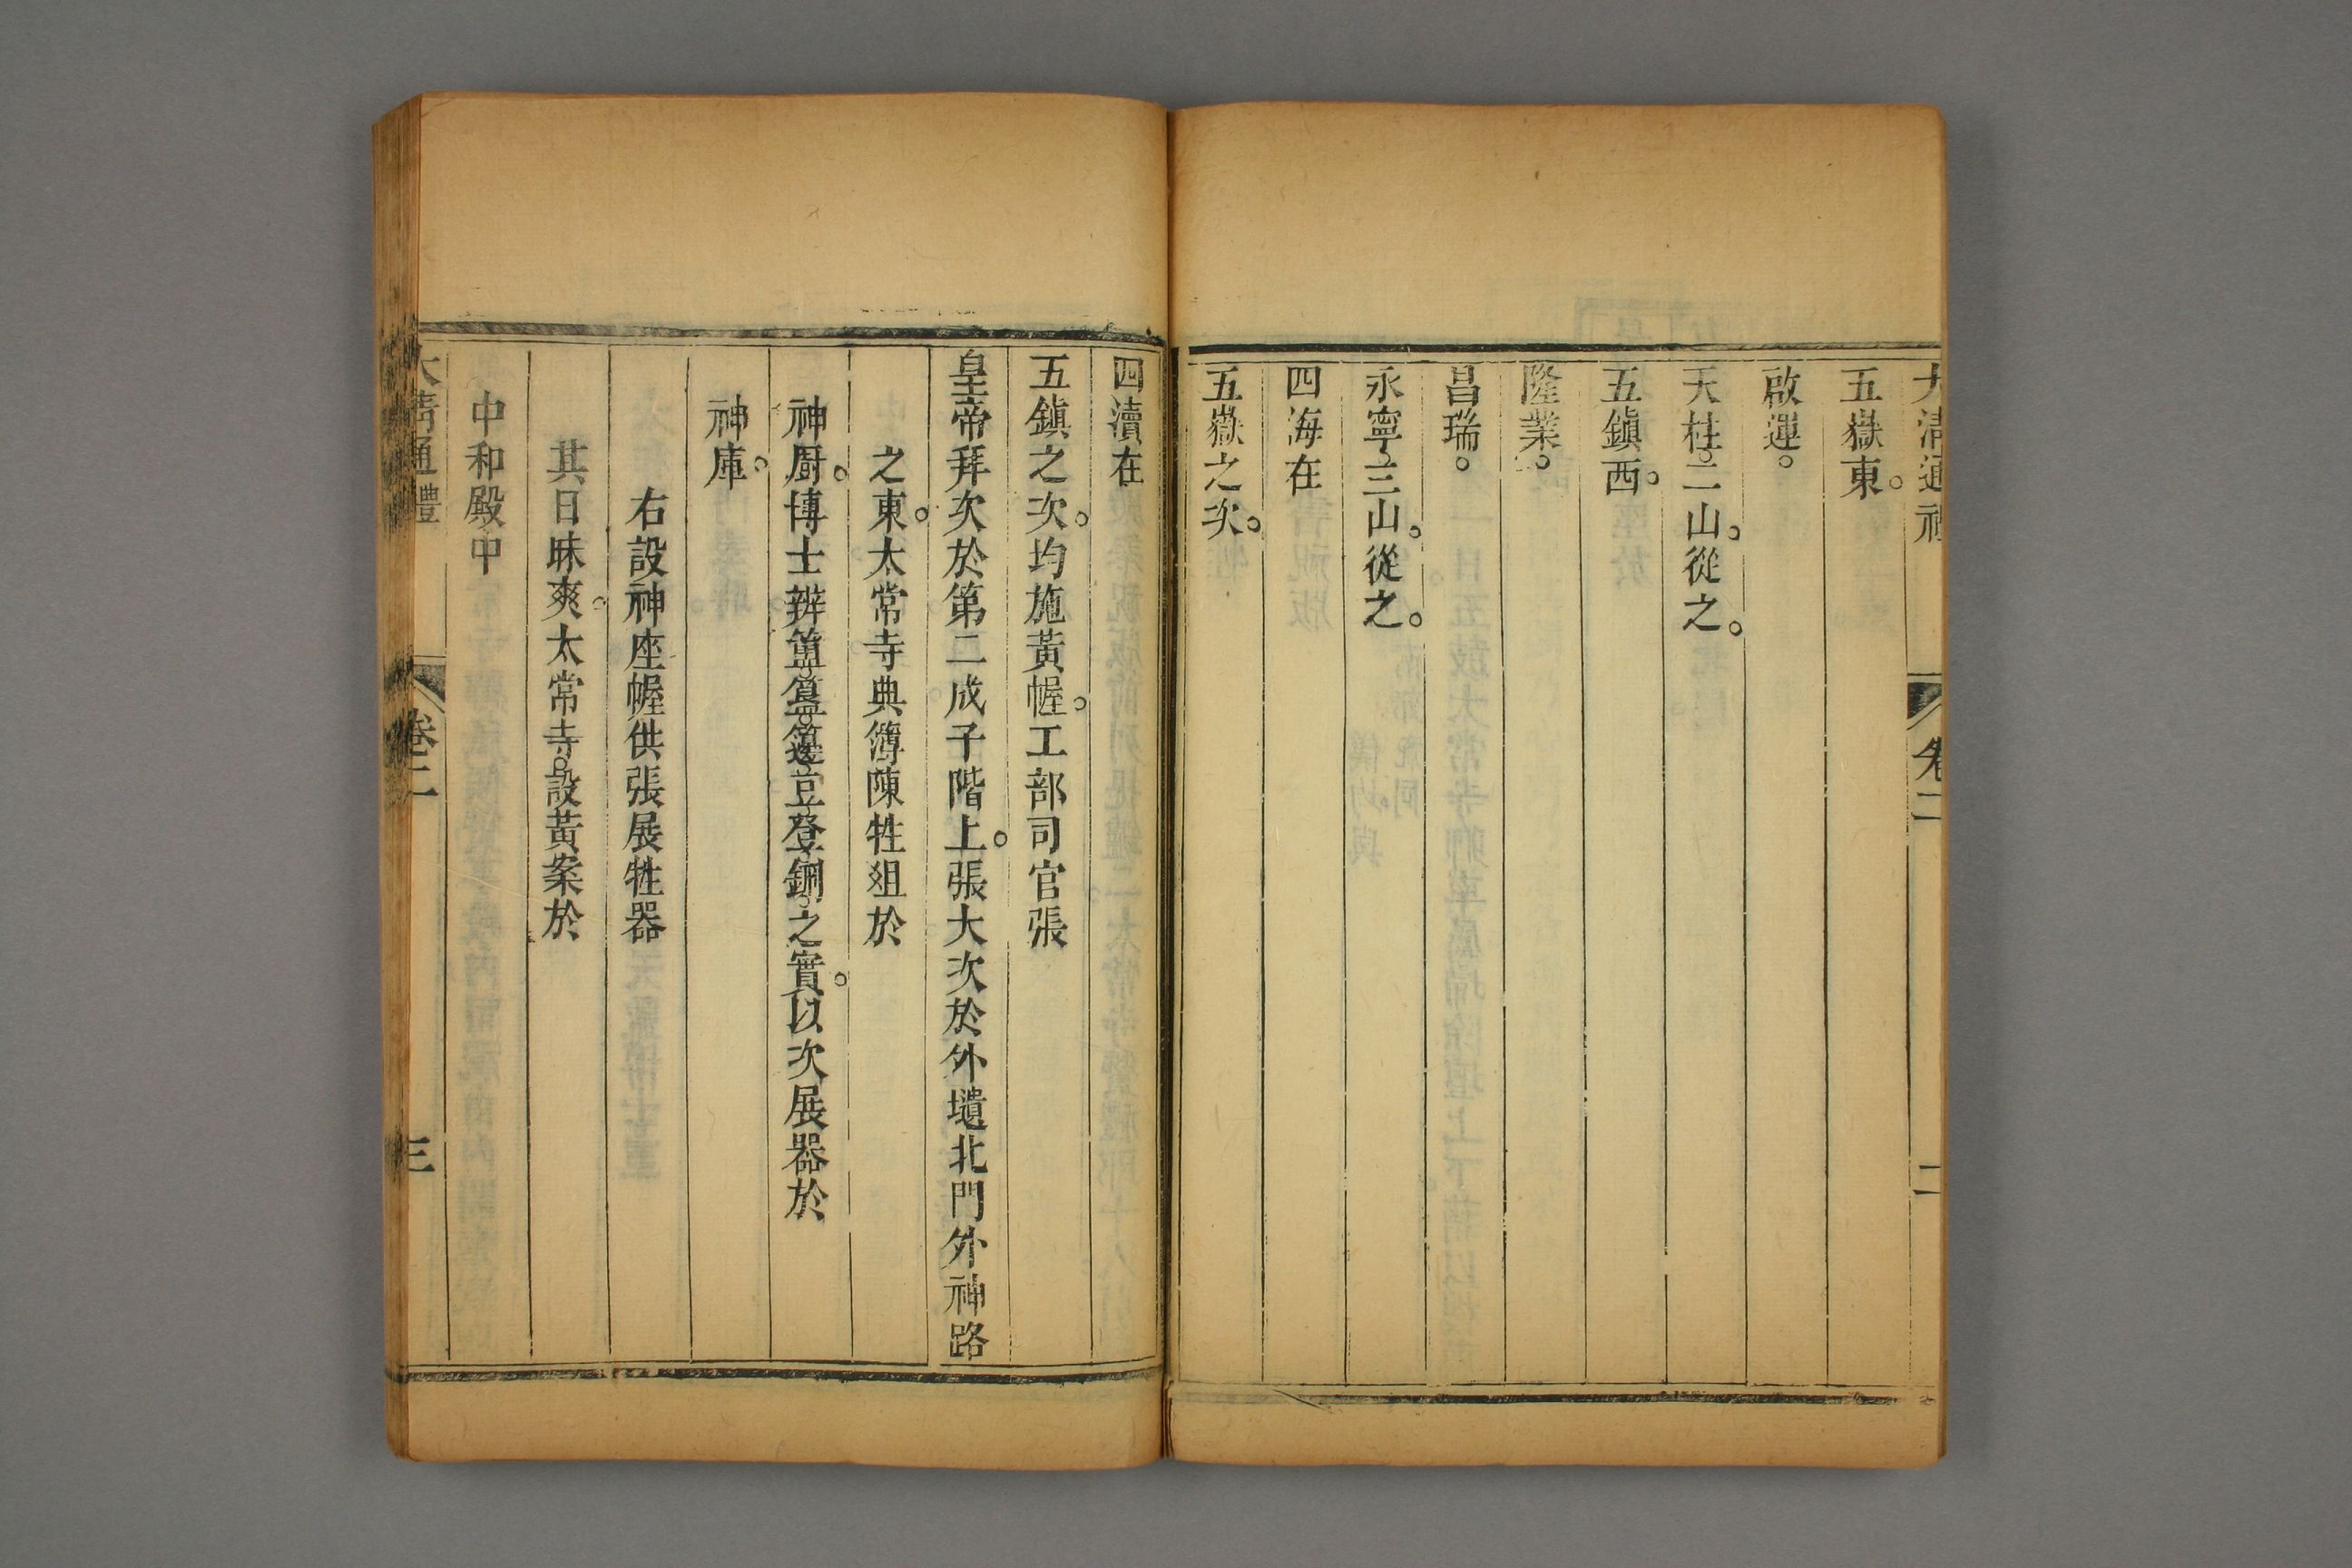 大清通禮 卷二 二
五嶽東。
啟運。
天柱。二山。從之。
五鎮西。
隆業。
昌瑞。
永寧。三山。從之。
四海在
五嶽之次。
四瀆在
五鎮之次。均施黃幄。工部司官張
皇帝拜次於第二成子階上。張大次於外壝北門外神路
之東。太常寺典簿陳牲俎於
神厨。博士辨簠。簋。籩。豆。登。鉶。之實。以次展器於
神庫。
右設神座幄供張展牲器
其日昧爽。太常寺。設黃案於
中和殿中
大清通禮 卷二 三